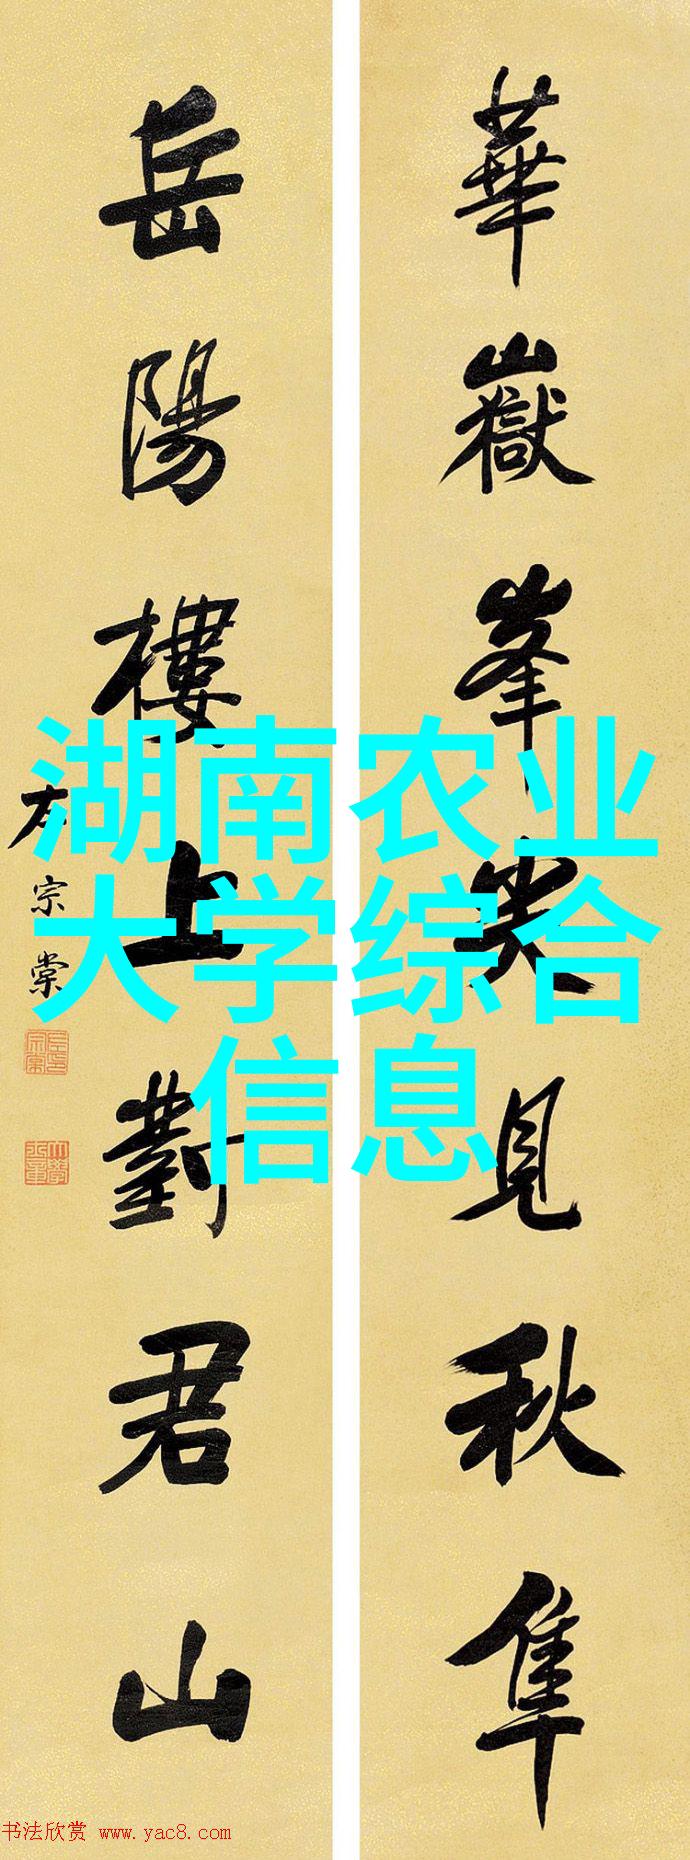 華嶽峯尖見秋隼
岳陽樓上對君山
左宗棠
湖南农业
大学综合
信息
书法欣赏 www.yac8.com